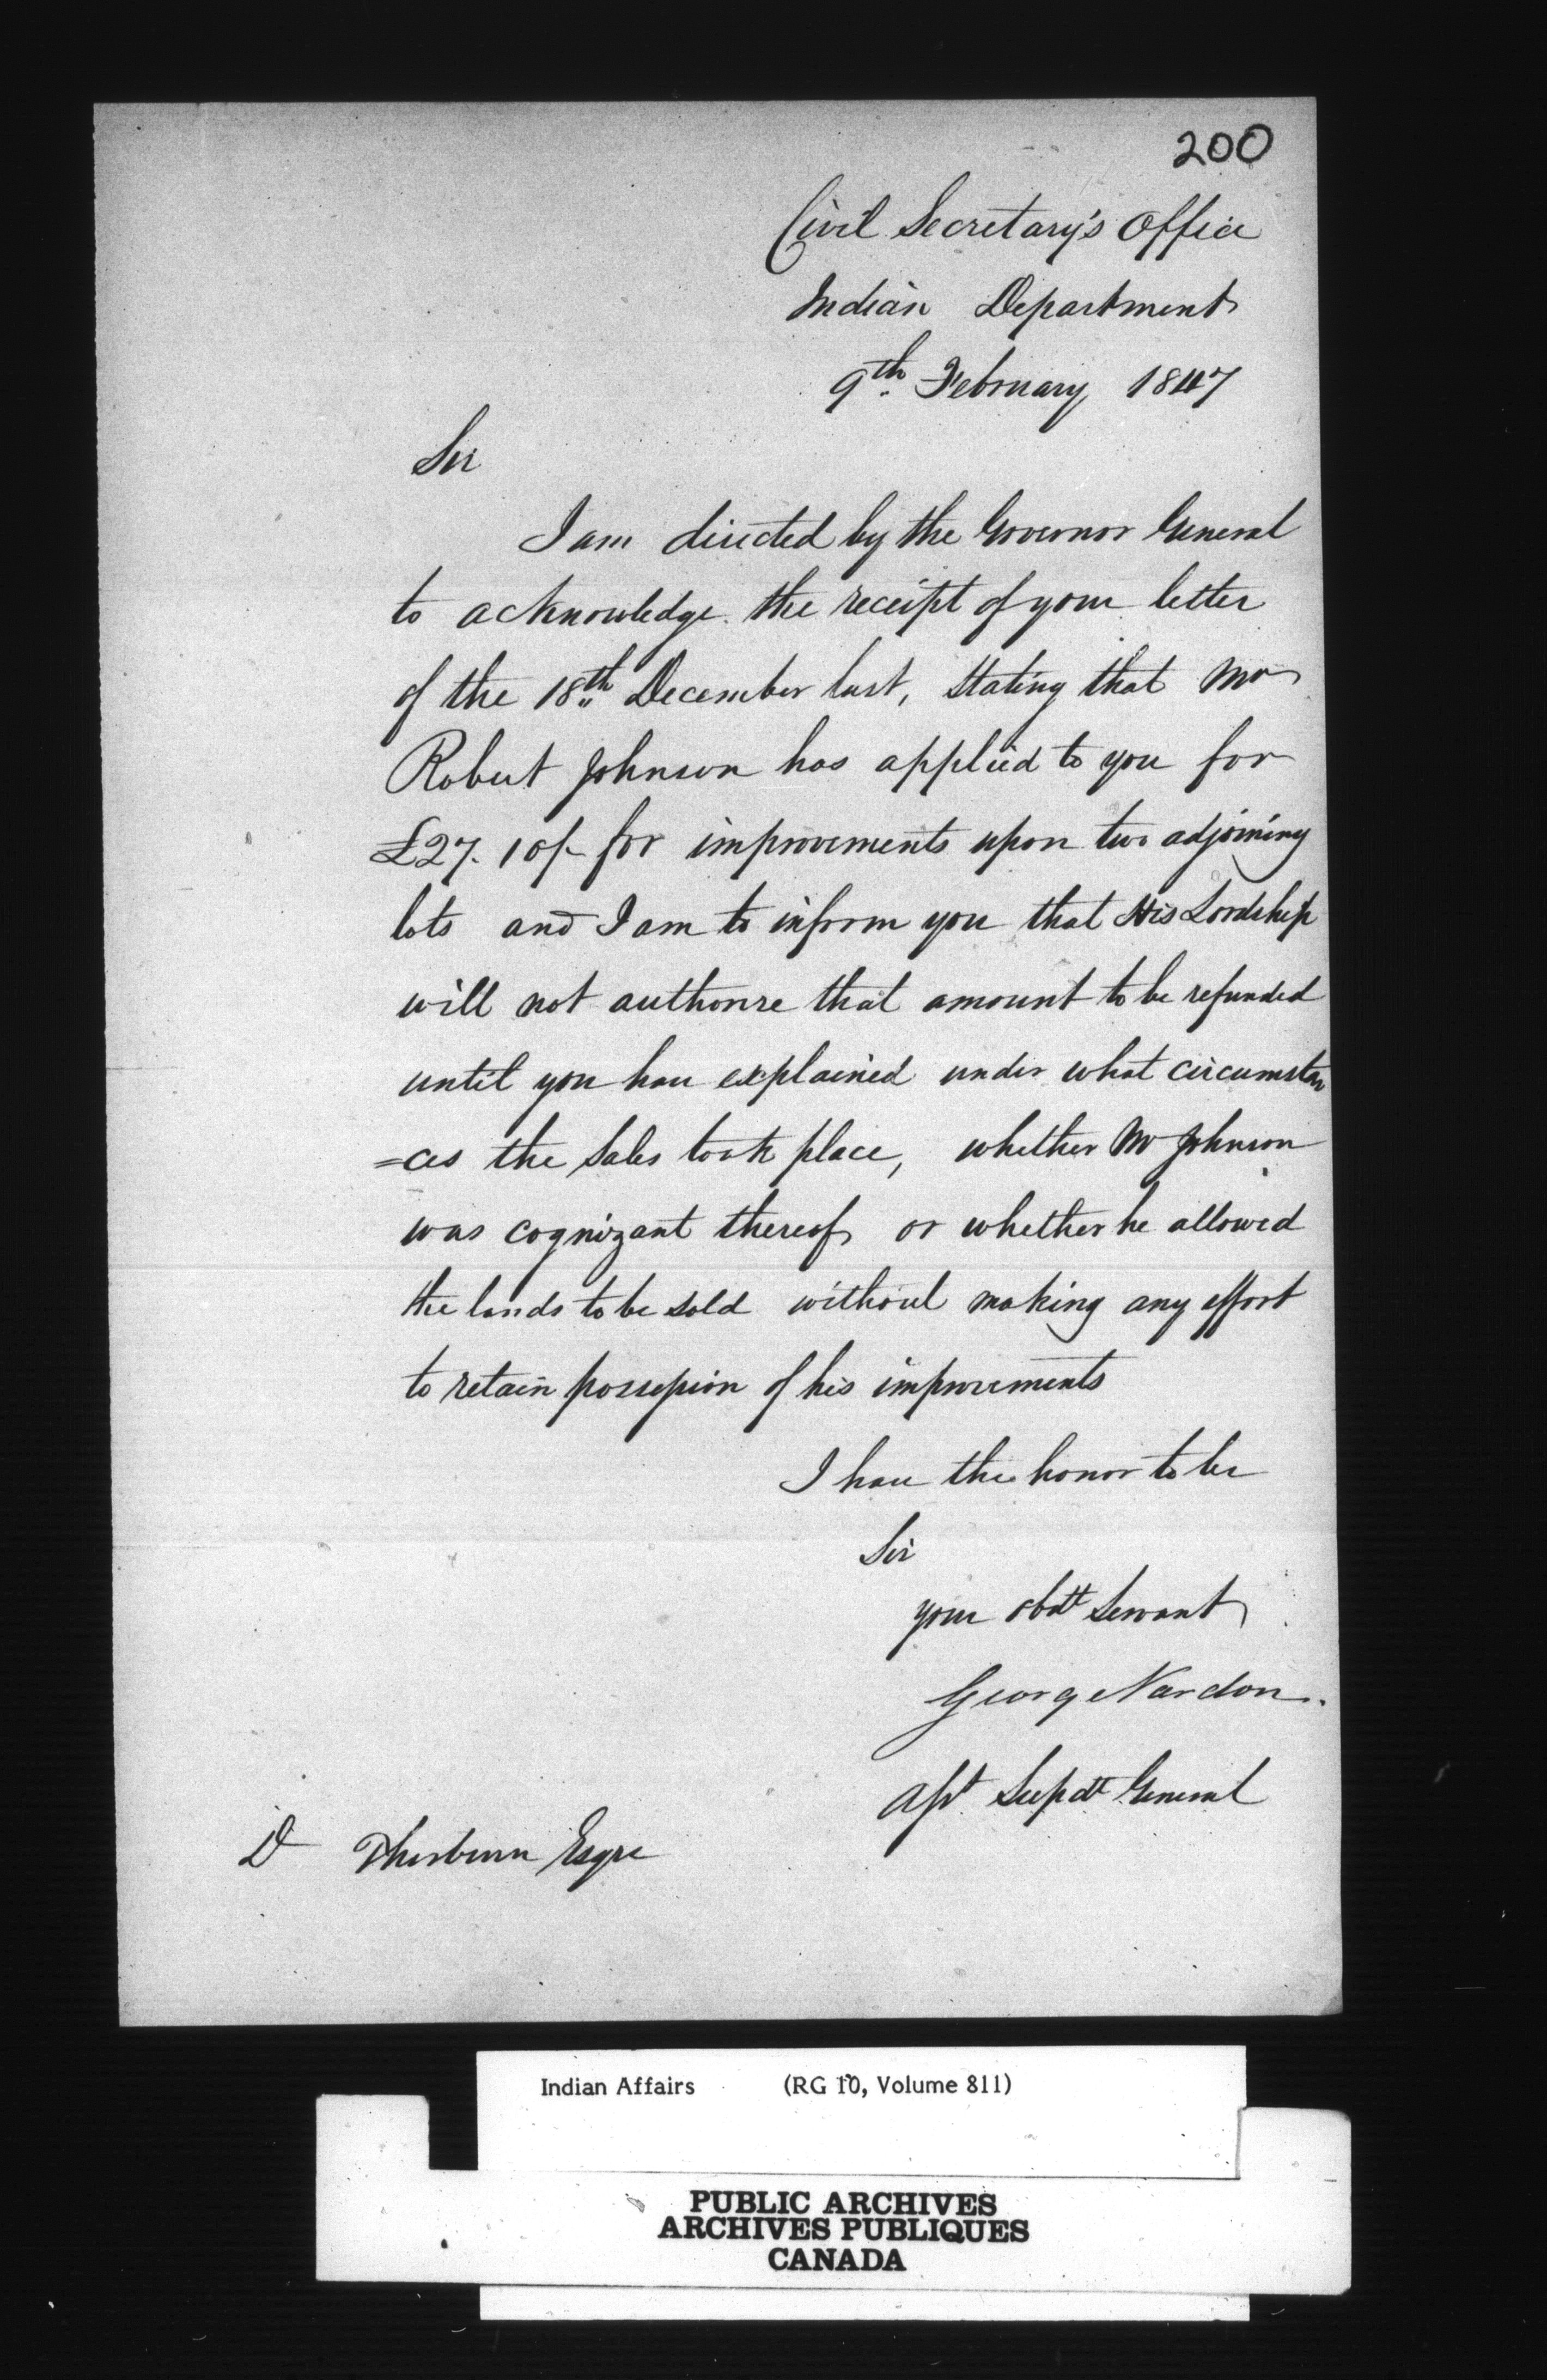 200
Civil Secretary's Office
Indian Department
9th February 1847
Sir
I am directed by the Governor General
to acknowledge the receipt of your letter
of the 18th December last, stating that Mr
Robert Johnson has applied to you for
£27. 10/- for improvements upon two adjoining
lots and I am to inform you that His Lordship
will not authorise that amount to be refunded
until you have explained under what circumstan
=ces the sales took place, whether Mr Johnson
was cognizant thereof or whether he allowed
the lands to be sold without making any effort
to retain possession of his improvements
I have the honor to be
Sir
your obdt Servant
George Vardon
Asst Supdt General
D Thorburn Esqre
Indian Affairs (RG 10, Volume 811)
PUBLIC ARCHIVES
ARCHIVES PUBLIQUES
CANADA